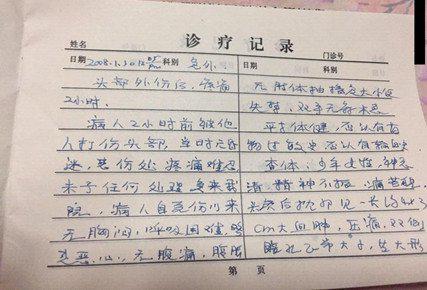 诊疗记录
姓名 门诊号
日期 2008.1.30 科别 急外 日期 科别
头部外伤后,疼痛
2小时.
病人2小时前被他
人打伤头部,当时无昏
迷,患伤处疼痛难忍
未予任何处理急来我
院,病人自受伤以来
无胸闷,呼吸困难,略
觉恶心,无腹痛,腹胀
无肢体抽搐及大小便
失禁,双手无麻木感
平素体健,否认有药
物过敏史否认有
查体:
清,精神不振,痛苦貌,
头顶后枕部见一长约4x3
cm大血肿,压痛,双侧
瞳孔乙等大,
第 页